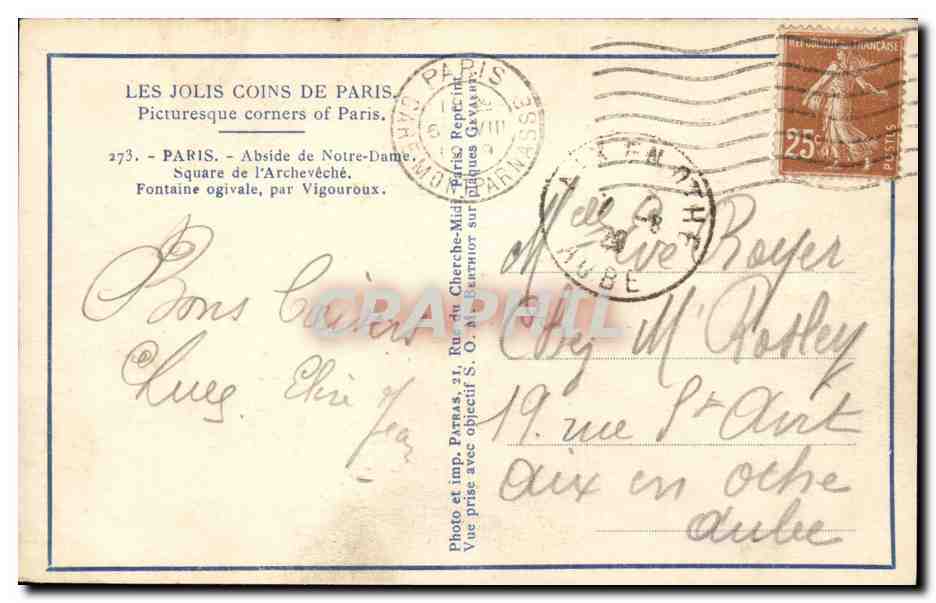 LES JOLIS COINS DE PARIS.
Picturesque corners of Paris.
273. - PARIS. - Abside de Notre-Dame.
Square de l'Archevêché.
Fontaine ogivale, par Vigouroux.
Bons Baisers
Elise
Jean
Photo et imp. PATRAS, 21, Rue du Cherche-Midi, Paris. Repr. int.
Vue prise avec objectif S. O. M. BERTHIOT sur plaques GEVAERT.
PARIS
GARE MONTPARNASSE
VIII
REPUBLIQUE FRANÇAISE
25c
POSTES
AIX EN OTHE
-8
29
AUBE
CPAPHIL
Melle Eve Royer
Chez Mr
19. rue St Avit
aix en othe
aube